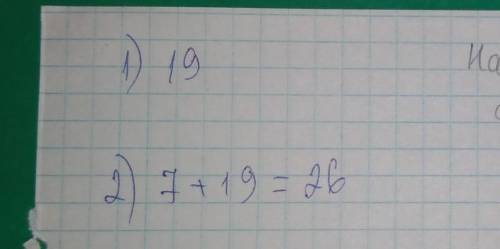 1) 19
На
2) 7 + 19 = 26